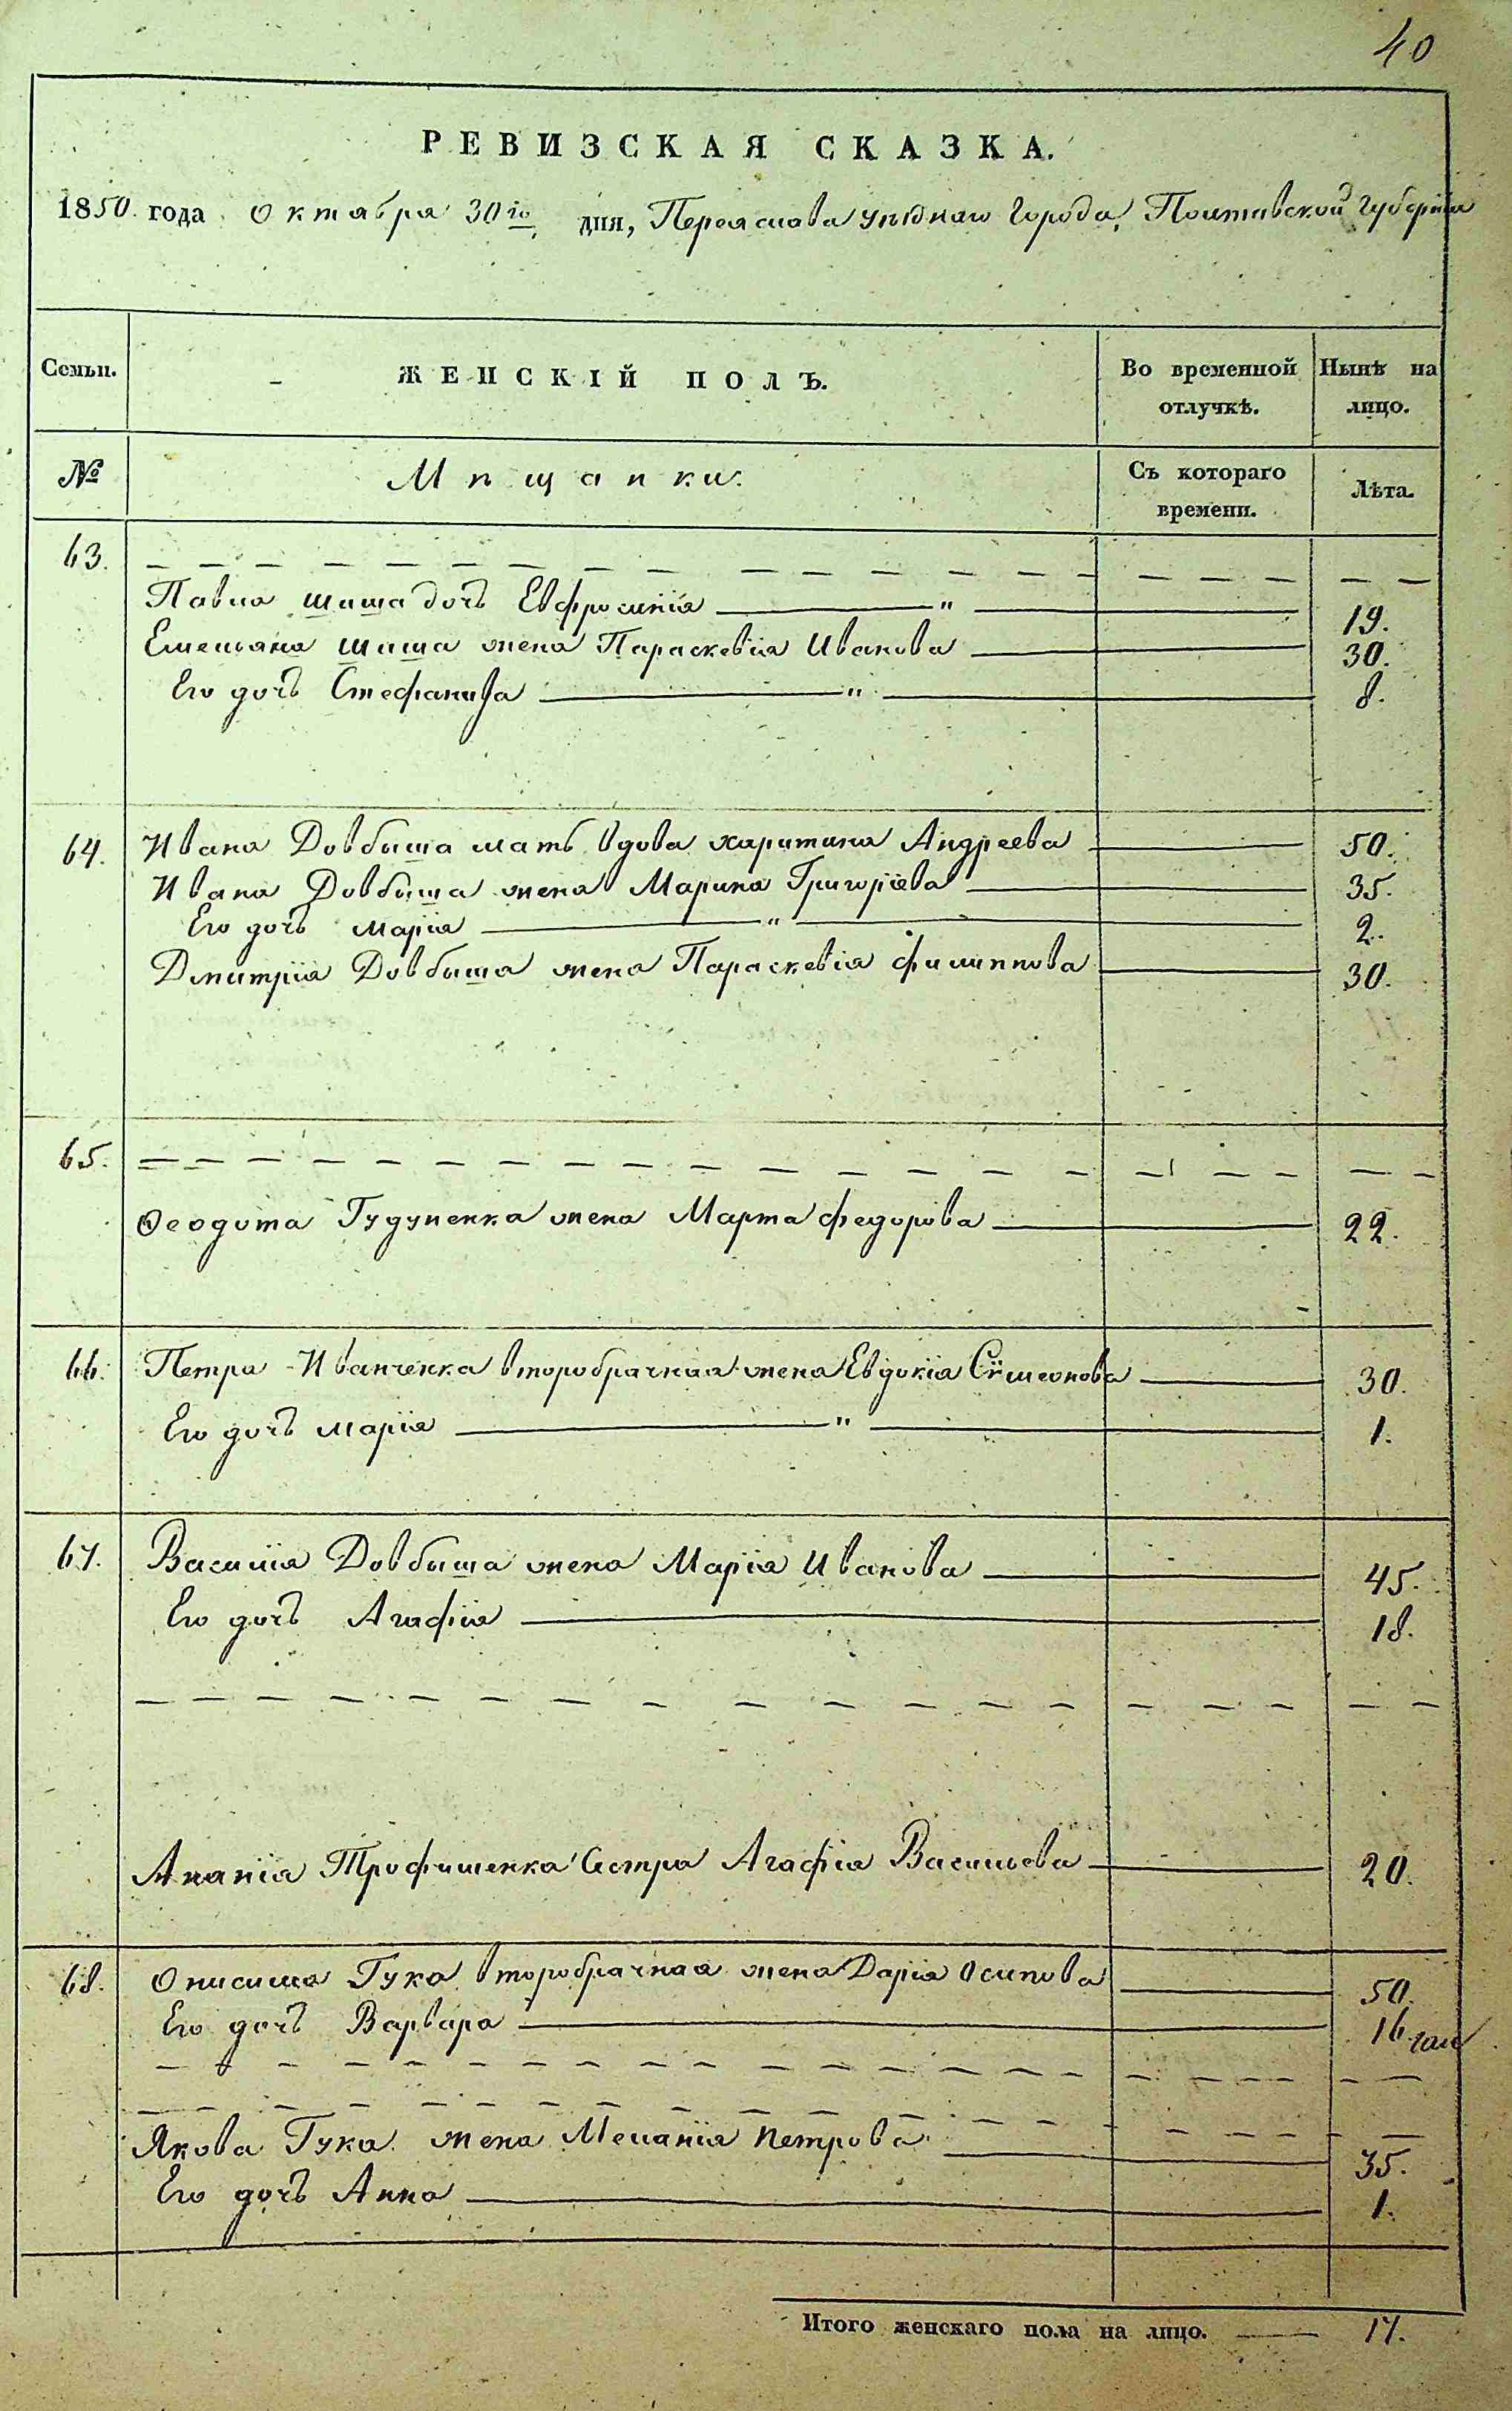 40
РЕВИЗСКАЯ СКАЗКА.
1850. года Октября 30го дня, Переяслова уѣзднаго Города, Полтавской Губерніи
Семьи. ЖЕНСКІЙ ПОЛЪ. Во временной отлучкѣ. Нынѣ на лицо.
№ Мѣщанки. Съ котораго времени. Лѣта.
63.
Павла Шиша дочь Евфросинія " 19.
Емельяна Шиша жена Параскевія Иванова 30.
Его дочь Стефанида " 8.
64. Ивана Довбыша мать вдова Харитина Андреева 50.
Ивана Довбыша жена Марина Григоріева 35.
Его дочь Марія " 2.
Дмитрія Довбыша жена Параскевія Филиппова 30.
65.
Феодота жена Марта Федорова 22.
66. Петра Иванченка второбрачная жена Евдокія Сѵмеонова 30.
Его дочь Марія " 1.
67. Василія Довбыша жена Марія Иванова 45.
Его дочь Агафія 18.
Ананія Трофименка Сестра Агафія Васильева 20.
68. Онисима Гука второбрачная жена Дарія Осипова 50.
Его дочь Варвара 16
Якова Гука жена Меланія Петрова 35.
Его дочь Анна 1.
Итого женскаго пола на лицо. 17.